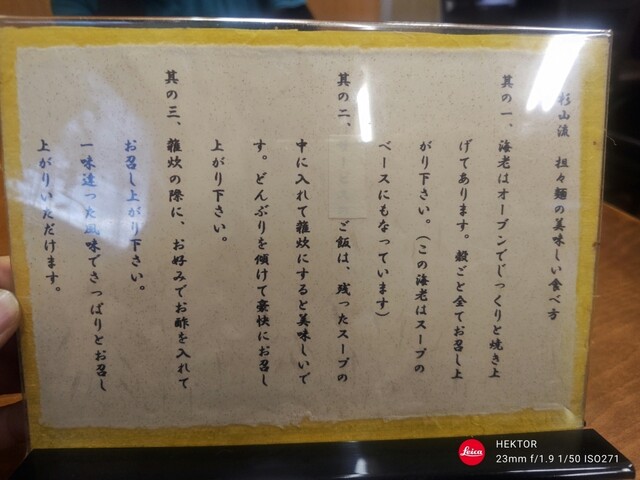 杉山流　担々麺の美味しい食べ方
其の一、海老はオーブンでじっくりと焼き上
げてあります。殻ごと全てお召し上
がり下さい。（この海老はスープの
ベースにもなっています）
其の二、ご飯は、残ったスープの
中に入れて雑炊にすると美味しいで
す。どんぶりを傾けて豪快にお召し
上がり下さい。
其の三、雑炊の際に、お好みでお酢を入れて
お召し上がり下さい。
一味違った風味でさっぱりとお召し
上がりいただけます。
Leica
HEKTOR
23mm f/1.9 1/50 ISO271